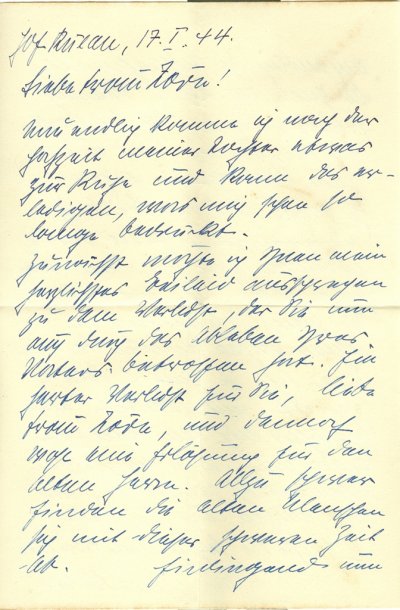 Hof Rulau, 17. I. 44.
Liebe Frau Korn!
Nun endlich komme ich nach der
Hochzeit meiner Tochter etwas
zur Ruhe und kann das er-
ledigen, was mich schon so
lange bedrückt.
Zunächst möchte ich Ihnen mein
herzlichstes Beileid aussprechen
zu dem Verlust, der Sie nun
auch durch das Ableben Ihres
Vaters betroffen hat. Ein
harter Verlust für Sie, liebe
Frau Korn, und dennoch
wohl eine Erlösung für den
alten Herrn. Allzu schwer
finden die alten Menschen
sich mit dieser schweren Zeit
ab. nun